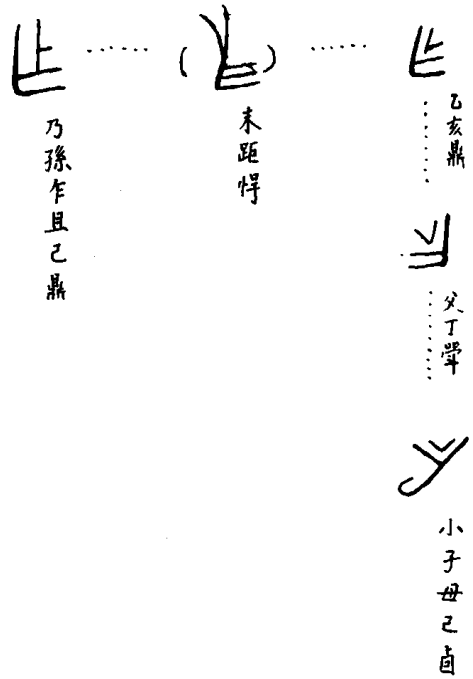 乙亥鼎
父丁斝
小子母己卣
末距悍
乃孫乍且己鼎